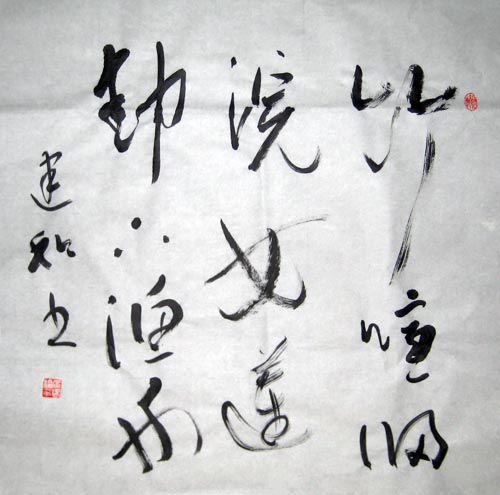 竹喧归
浣女莲
動下渔舟
建和书